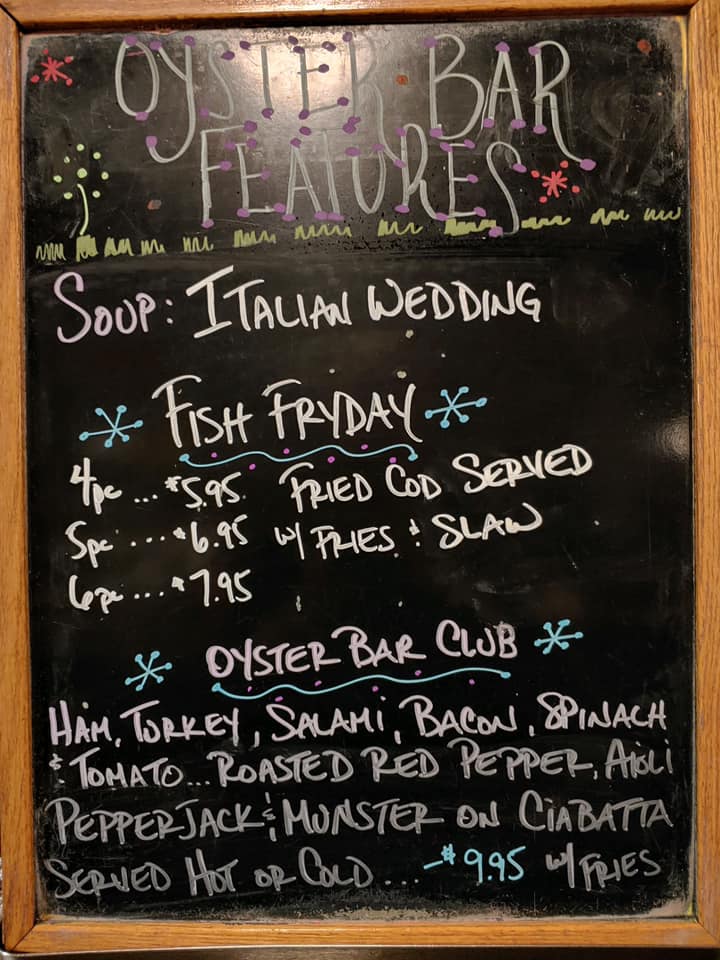 OYSTER BAR
FEATURES
SOUP: ITALIAN WEDDING
FISH FRYDAY
4pc ... $5.95 FRIED COD SERVED
5pc .... $6.95 W/ FRIES & SLAW
6pc .... $7.95
OYSTER BAR CLUB
HAM, TURKEY, SALAMI, BACON, SPINACH
& TOMATO... ROASTED RED PEPPER, AISLI
PEPPERJACK & MUNSTER ON CIABATTA
SERVED HOT OR COLD .... $9.95 W/ FRIES